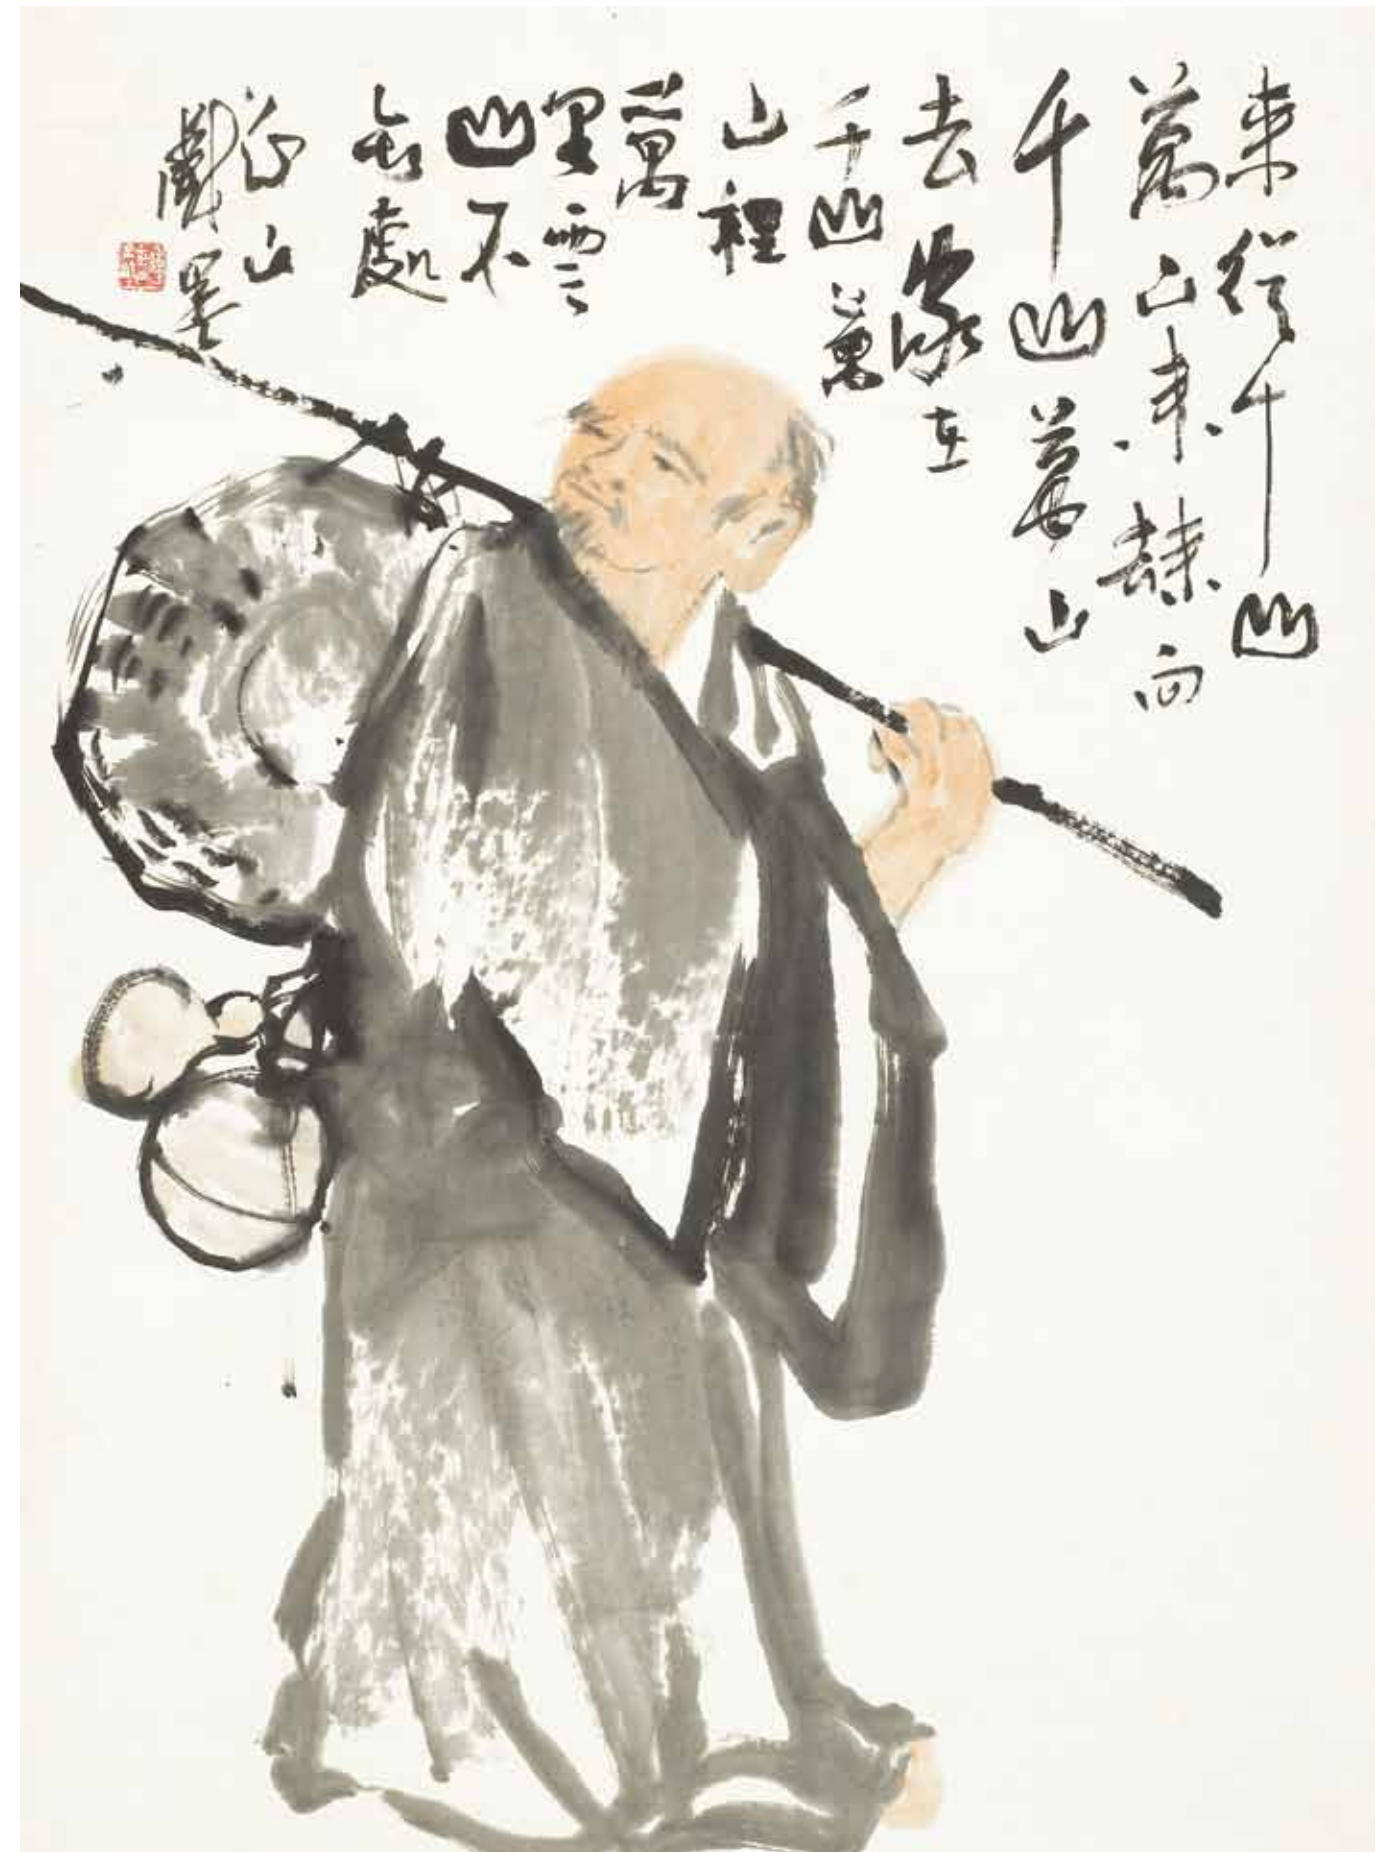 来從千山
萬山来歸向
千山萬山
去家在
千山萬
山裡
萬
里雲
山不
知處
山
戲墨